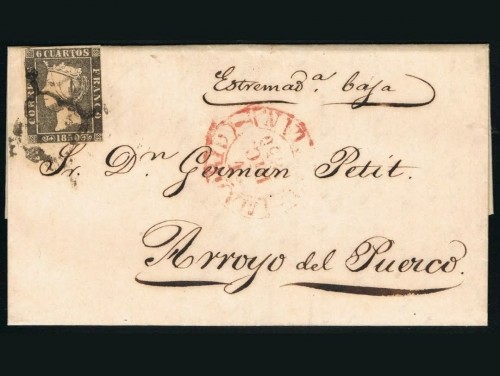 6 CUARTOS
CORREOS
FRANCO
1850
Estremad.ª baja
Sr. Dn German Petit.
Arroyo del Puerco.